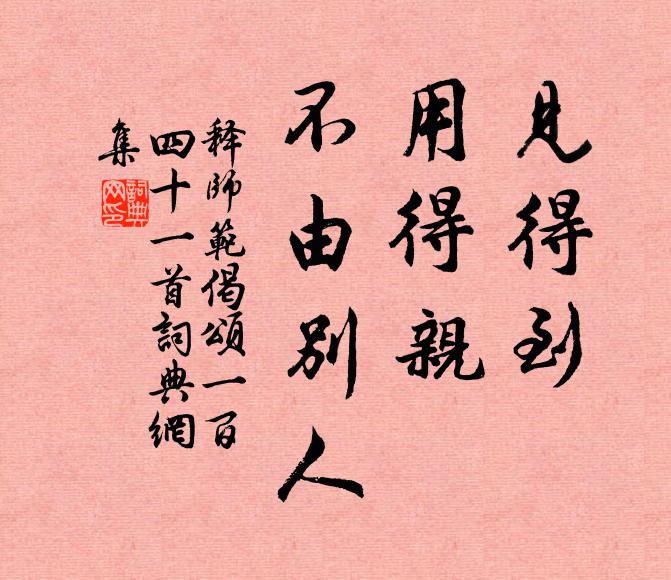 見得到
用得親
不由別人
释師範偈頌一百
四十一首詞典網
集
詞典
网印